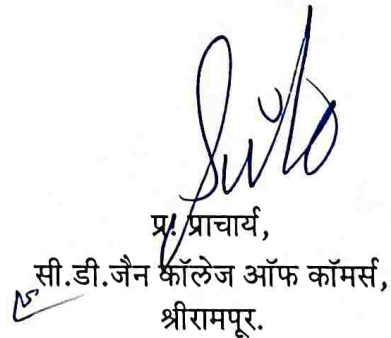 प्र. प्राचार्य,
सी.डी.जैन कॉलेज ऑफ कॉमर्स,
श्रीरामपूर.